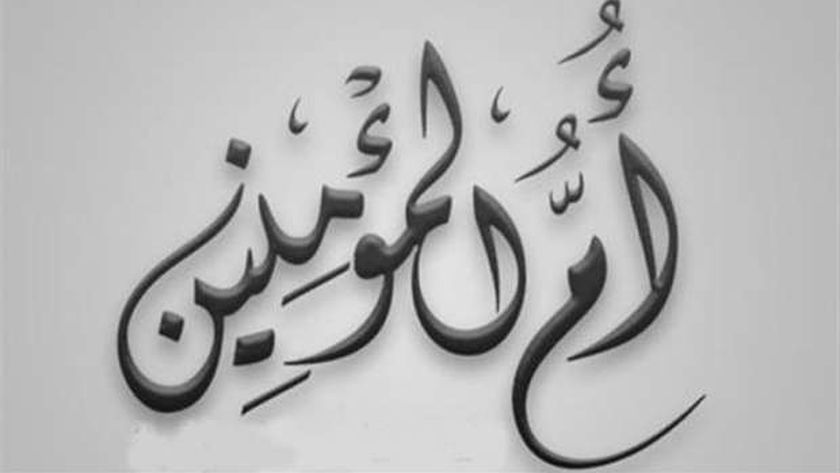 أُمُّ المُؤْمِنِين